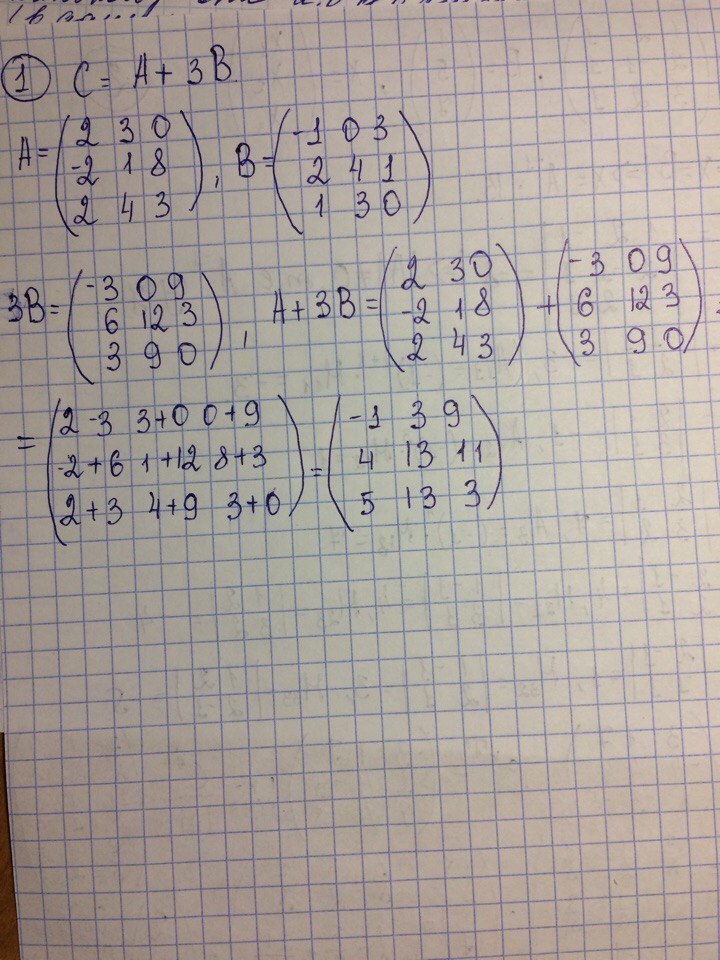 1 C = A + 3B
A = (2 3 0
-2 1 8
2 4 3), B = (-1 0 3
2 4 1
1 3 0)
3B = (-3 0 9
6 12 3
3 9 0), A + 3B = (2 3 0
-2 1 8
2 4 3) + (-3 0 9
6 12 3
3 9 0) =
= (2-3 3+0 0+9
-2+6 1+12 8+3
2+3 4+9 3+0) = (-1 3 9
4 13 11
5 13 3)